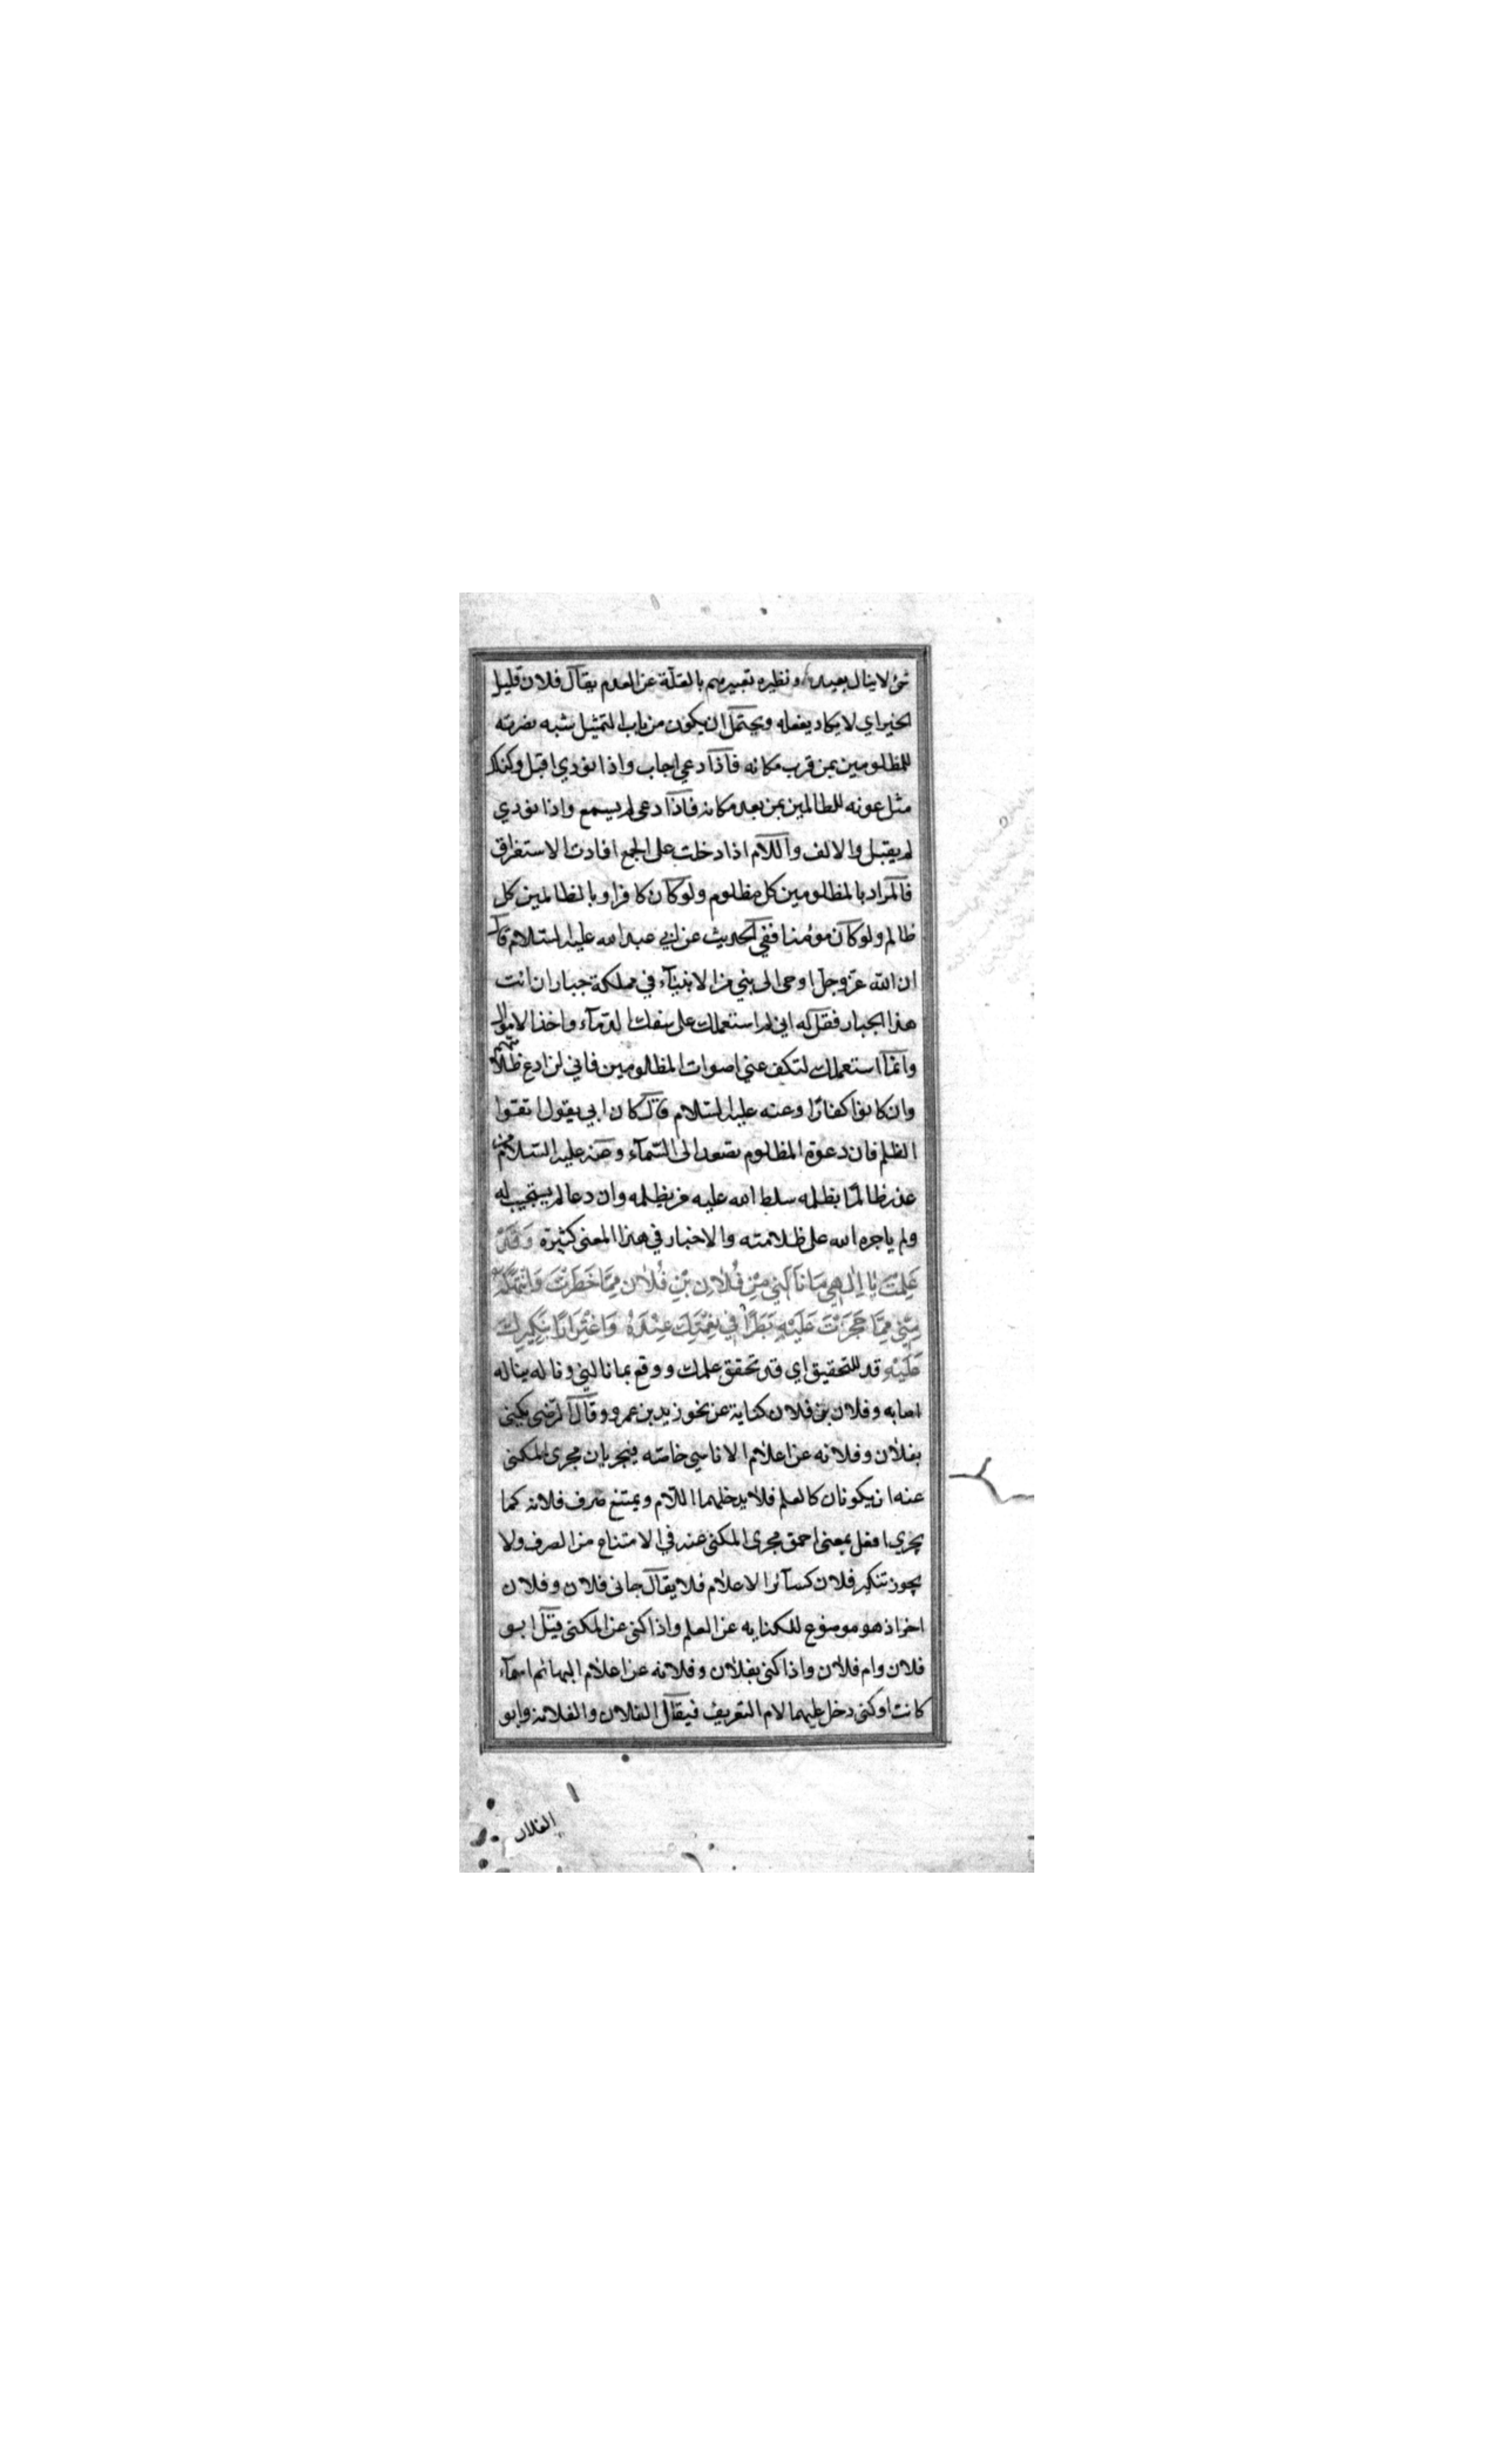 شئ لا ينال بعيده ونظيره تعبيرهم بالقلة عن العدم يقال فلان قليل
الخير اي لا يكاد يفعله ويحتمل ان يكون من باب التمثيل شبه نصرته
للمظلومين بمن قرب مكانه فاذا دعي اجاب واذا نودي اقبل وكذلك
مثل عونه للظالمين بمن بعد مكانه فاذا دعي لم يسمع واذا نودي
لم يقبل والالف واللام اذا دخلت على الجمع افادت الاستغراق
فالمراد بالمظلومين كل مظلوم ولو كان كافرا وبالظالمين كل
ظالم ولو كان مومنا ففي الحديث عن ابي عبد الله عليه السلام قال
ان الله عز وجل اوحى الى نبي من الانبياء في مملكة جبار ان ائت
هذا الجبار فقل له اني لم استعملك على سفك الدماء واخذ الاموال
وانما استعملتك لتكف عني اصوات المظلومين فاني لن ادع ظلامتهم
وان كانوا كفارا وعنه عليه السلام قال كان ابي يقول اتقوا
الظلم فان دعوة المظلوم تصعد الى السماء وعنه عليه السلام من
عذر ظالما بظلمه سلط الله عليه من يظلمه وان دعا لم يستجب له
ولم ياجره الله على ظلامته والاخبار في هذا المعنى كثيرة وَقَدْ
عَلِمْتَ يَا اِلٰهِي مَا نَالَنِي مِنْ فُلَانِ بْنِ فُلَانٍ مِمَّا حَظَرْتَ وَانْتَهَكَهُ
مِنِّي مِمَّا حَجَزْتَ عَلَيْهِ بَطَرًا فِي نِعْمَتِكَ عِنْدَهُ وَاغْتِرَارًا بِنَكِيرِكَ
عَلَيْهِ قد للتحقيق اي قد تحقق علمك ووقع بما نالني وناله يناله
اصابه وفلان بن فلان كناية عن نحو زيد بن عمرو وقال الرضي يكنى
بفلان وفلانه عن اعلام الاناسي خاصته فيجريان مجرى المكنى
عنه ان يكونان كالعلم فلا يدخلهما اللام ويمتنع صرف فلانه كما
يجري افعل بمعنى احمق مجرى المكنى عنه في الامتناع من الصرف ولا
يجوز تنكير فلان كسائر الاعلام فلا يقال جاني فلان وفلان
اخر اذ هو موضوع للكنايه عن العلم واذا كنى عن المكنى قيل ابو
فلان وام فلان واذا كنى بفلان وفلانه عن اعلام البهائم اسماء
كانت او كنى دخل عليهما لام التعريف فيقال الفلان والفلانه وابو
الفلان